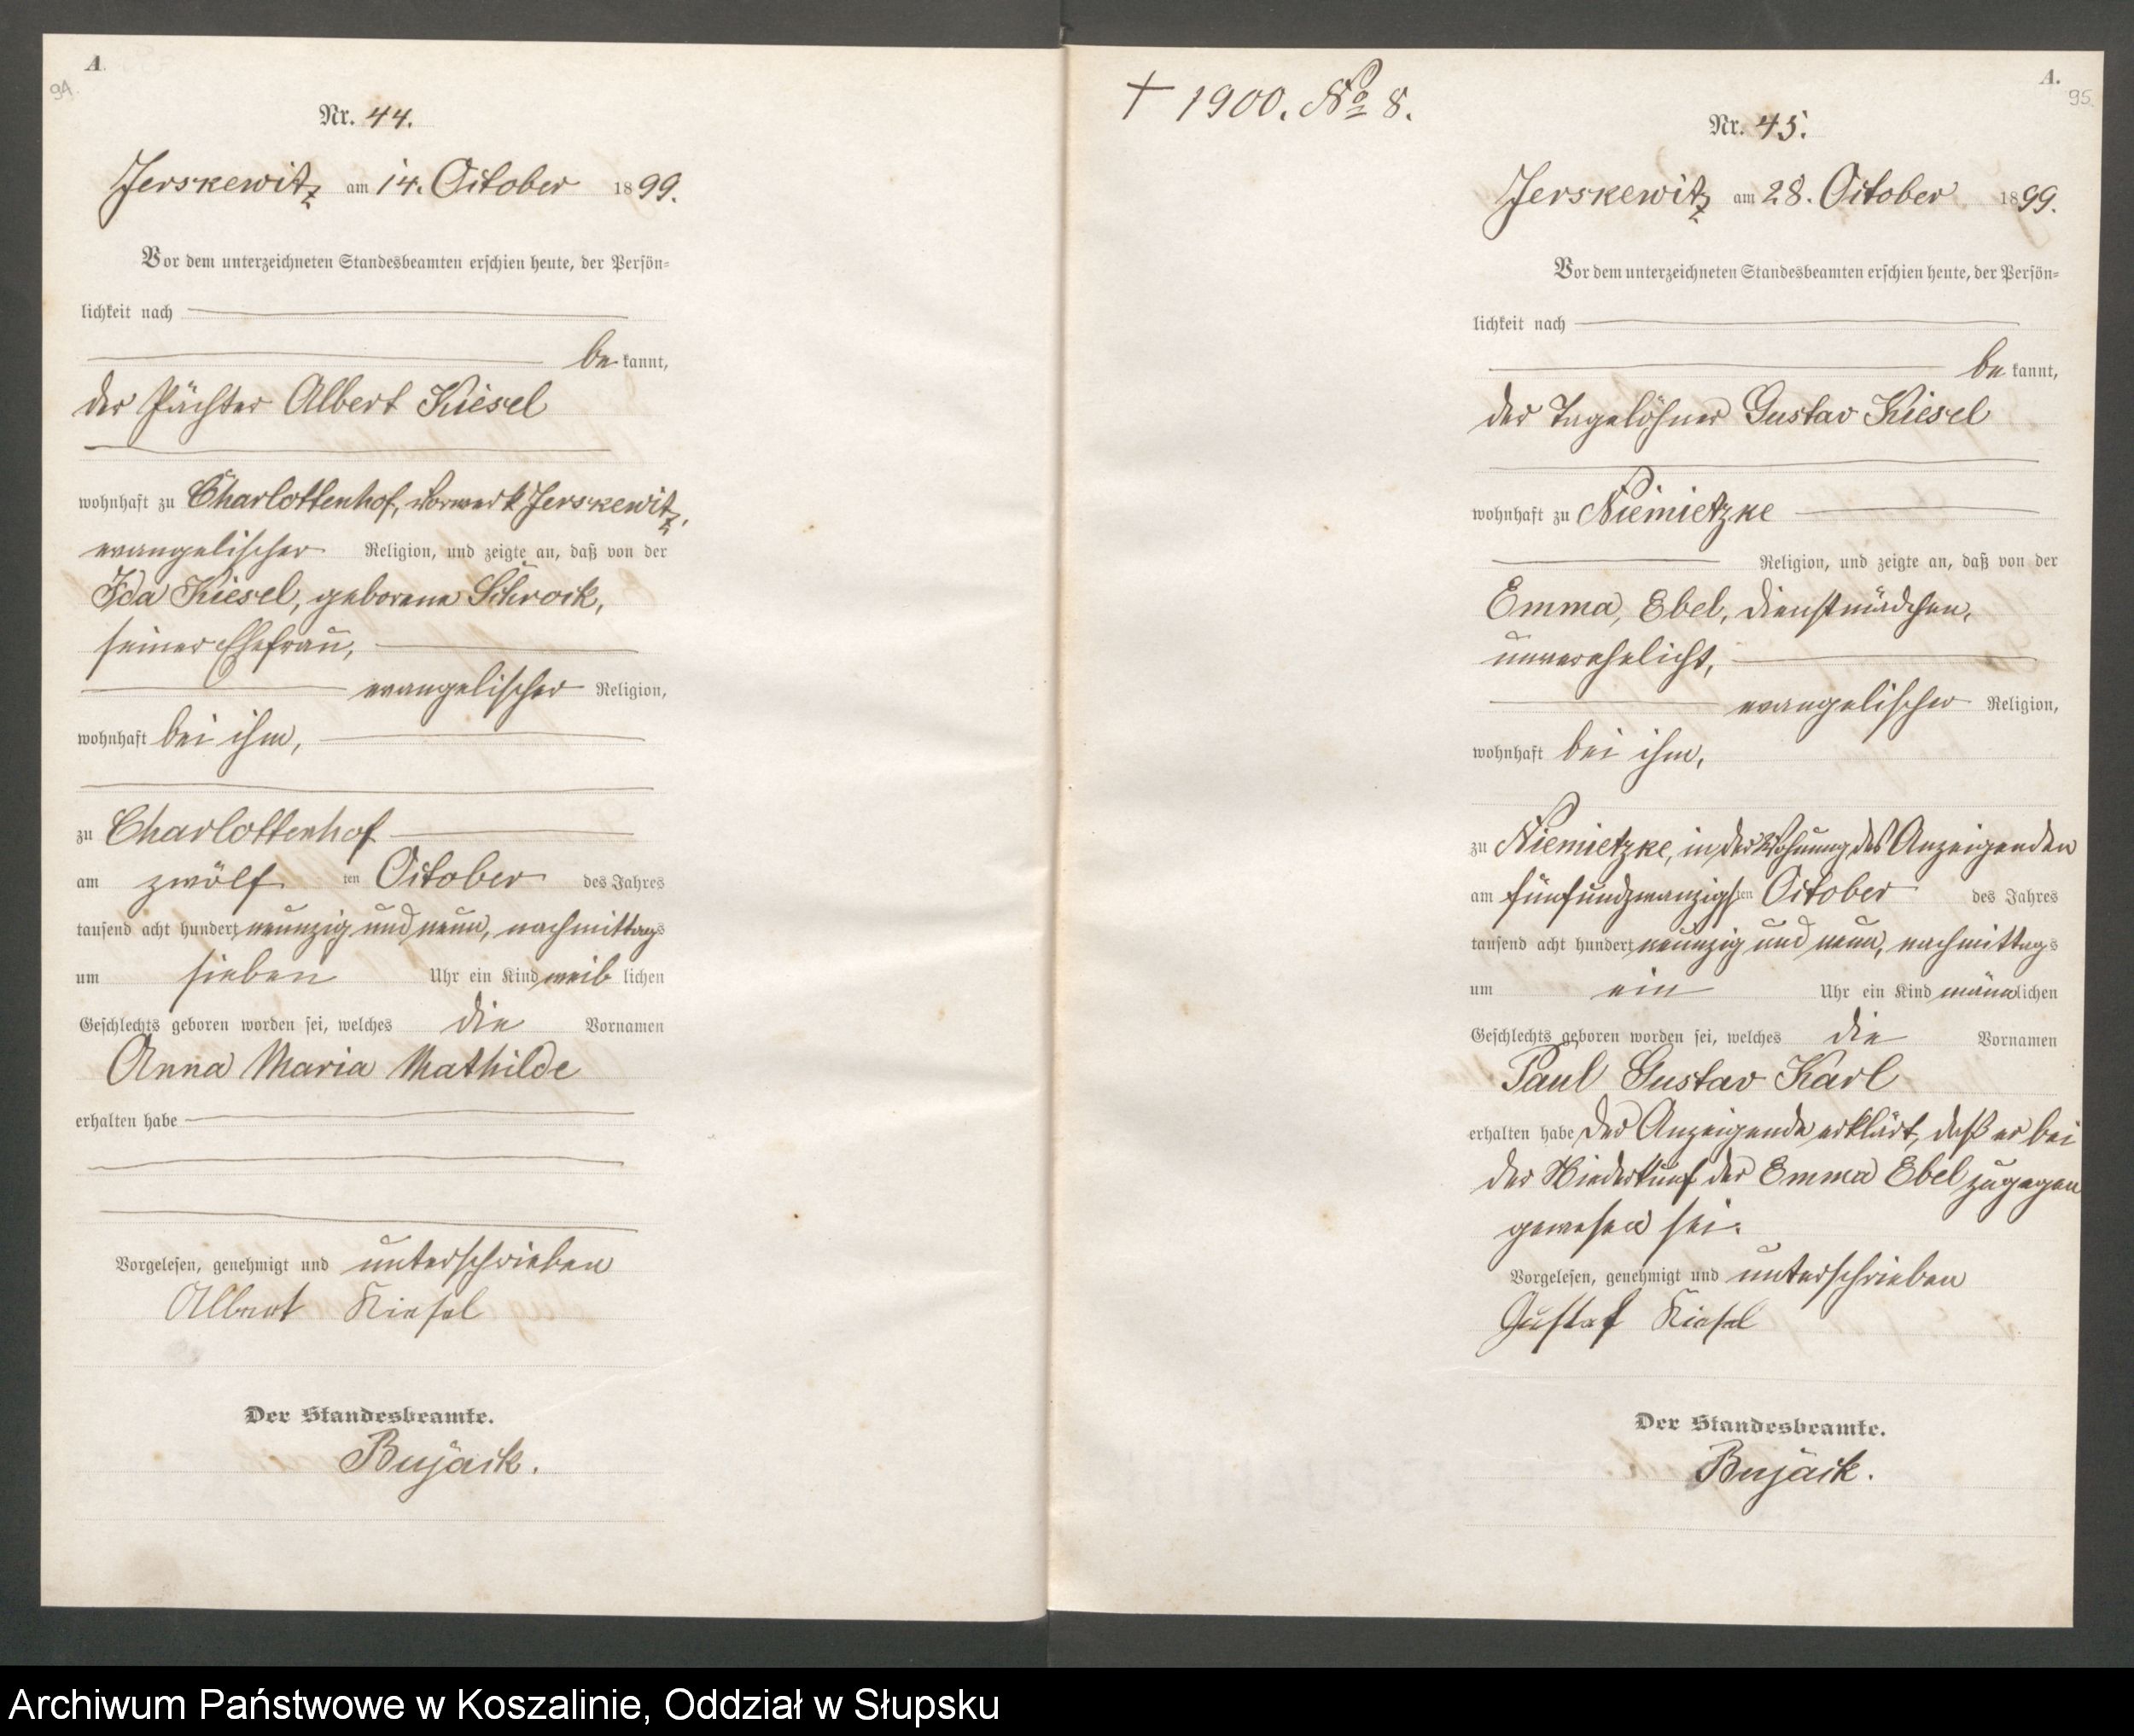 A.
94.
Nr. 44.
Jerskewitz am 14. October 1899.
Vor dem unterzeichneten Standesbeamten erschien heute, der Persön-
lichkeit nach
be kannt,
der Pächter Albert Kiesel
wohnhaft zu Charlottenhof, Vorwerk Jerskewitz,
evangelischer Religion, und zeigte an, daß von der
Ida Kiesel, geborene Schrock,
seiner Ehefrau,
evangelischer Religion,
wohnhaft bei ihm,
zu Charlottenhof
am zwölf ten October des Jahres
tausend acht hundert neunzig und neun, nachmittags
um sieben Uhr ein Kind weib lichen
Geschlechts geboren worden sei, welches die Vornamen
Anna Maria Mathilde
erhalten habe
Vorgelesen, genehmigt und unterschrieben
Albert Kiesel
Der Standesbeamte.
Bujack.
† 1900. No 8.
A.
95.
Nr. 45.
Jerskewitz am 28. October 1899.
Vor dem unterzeichneten Standesbeamten erschien heute, der Persön-
lichkeit nach
be kannt,
der Tagelöhner Gustav Kiesel
wohnhaft zu Niemietzke
Religion, und zeigte an, daß von der
Emma, Ebel, Dienstmädchen,
unverehelicht,
evangelischer Religion,
wohnhaft bei ihm,
zu Niemietzke, in der Wohnung des Anzeigenden
am fünfundzwanzigsten October des Jahres
tausend acht hundert neunzig und neun, nachmittags
um ein Uhr ein Kind männlichen
Geschlechts geboren worden sei, welches die Vornamen
Paul Gustav Karl
erhalten habe Der Anzeigende erklärt, daß er bei
der Niederkunf der Emma Ebel zugegen
gewesen sei.
Vorgelesen, genehmigt und unterschrieben
Gustaf Kiesel
Der Standesbeamte.
Bujack.
Archiwum Państwowe w Koszalinie, Oddział w Słupsku